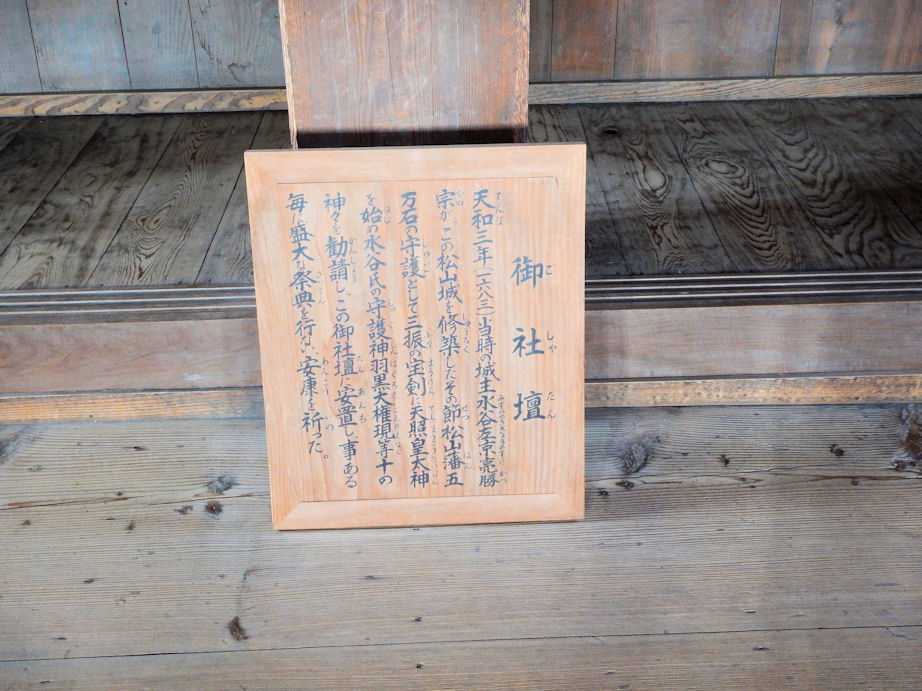 御社壇
天和三年(一六八三)当時の城主水谷左京亮勝
宗がこの松山城を修築したその節松山藩五
万石の守護として三振の宝剣に天照皇大神
を始め水谷氏の守護神羽黒大権現等十の
神々を勧請しこの御社壇に安置し事ある
毎に盛大な祭典を行ない安康を祈った。